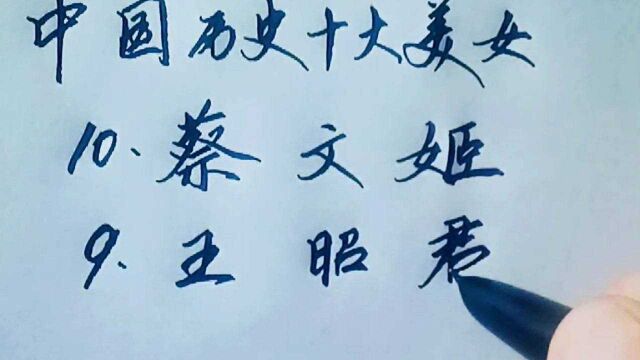 中国历史十大美女
10、蔡文姬
9、王昭君